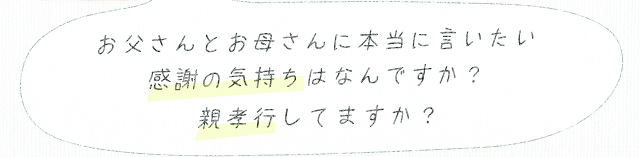 お父さんとお母さんに本当に言いたい
感謝の気持ちはなんですか？
親孝行してますか？